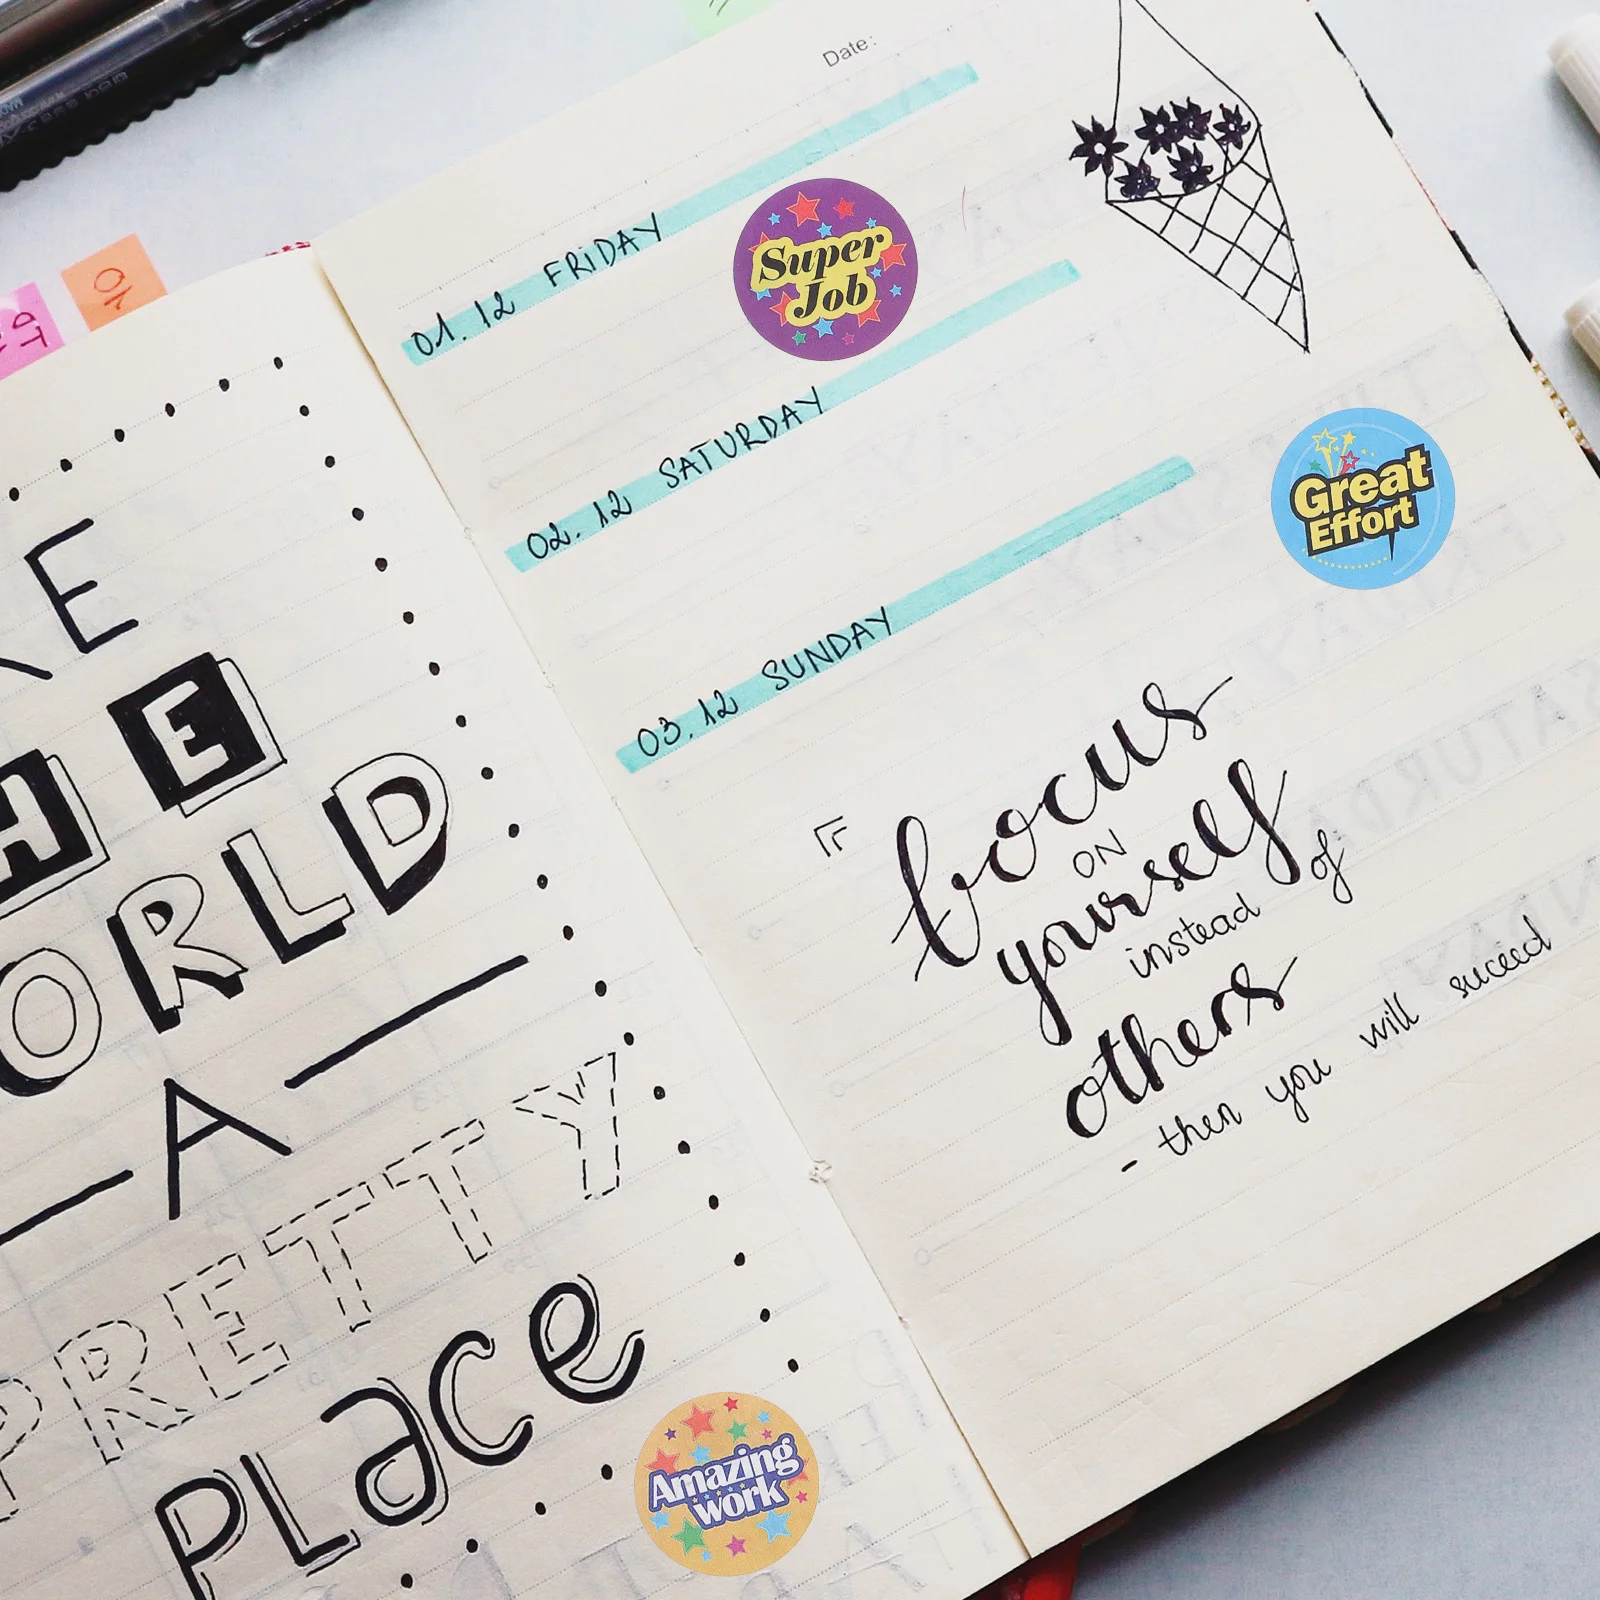 KE
HE
ORLD
A
PRETTY
PLace
Amazing
work
Date:
01.12 FRIDAY
Super
Job
02.12 SATURDAY
03.12 SUNDAY
Great
Effort
focus
ON
yourself
instead of
others
- then you will suceed